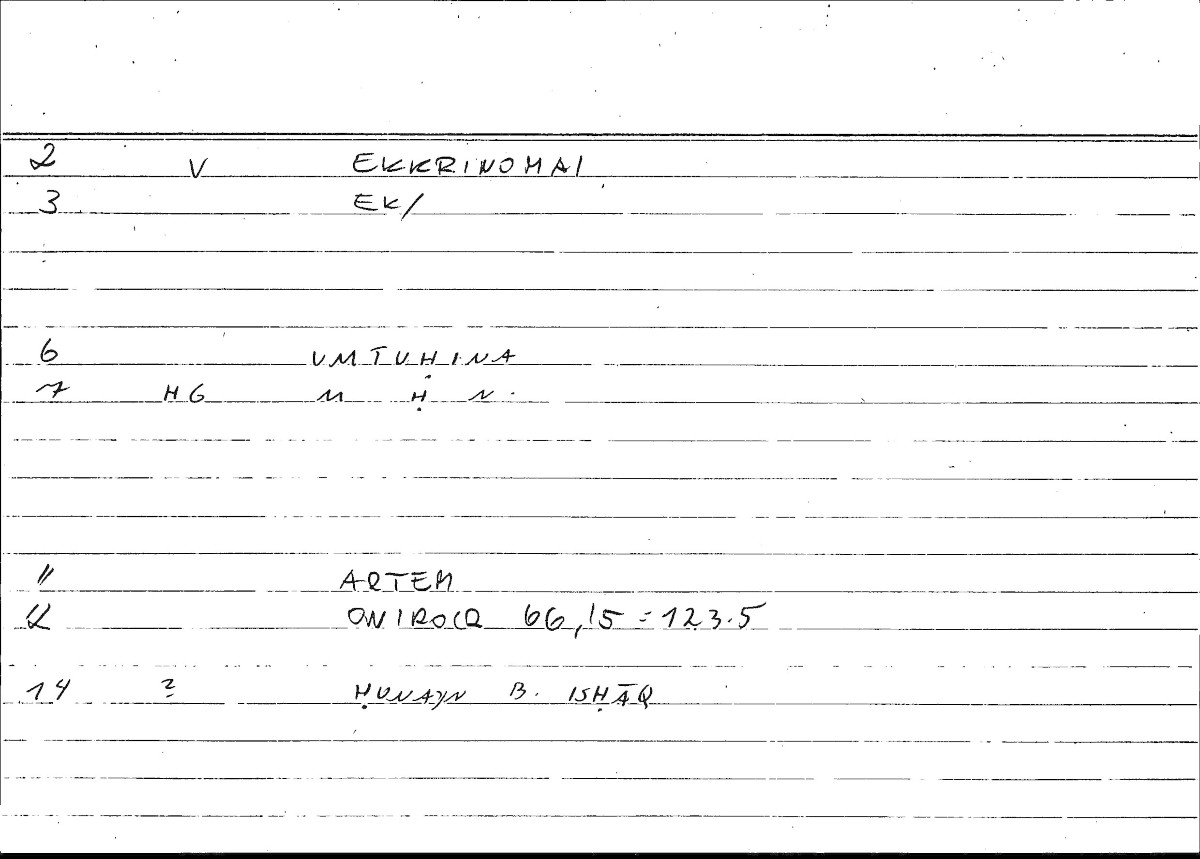 2 V EKKRINOMAI
3 EK/
6 UMTUḤINA
7 HG M Ḥ N.
11 ARTEM
12 ONIROCR 66,15 = 123.5
14 2 ḤUNAYN B. ISḤĀQ